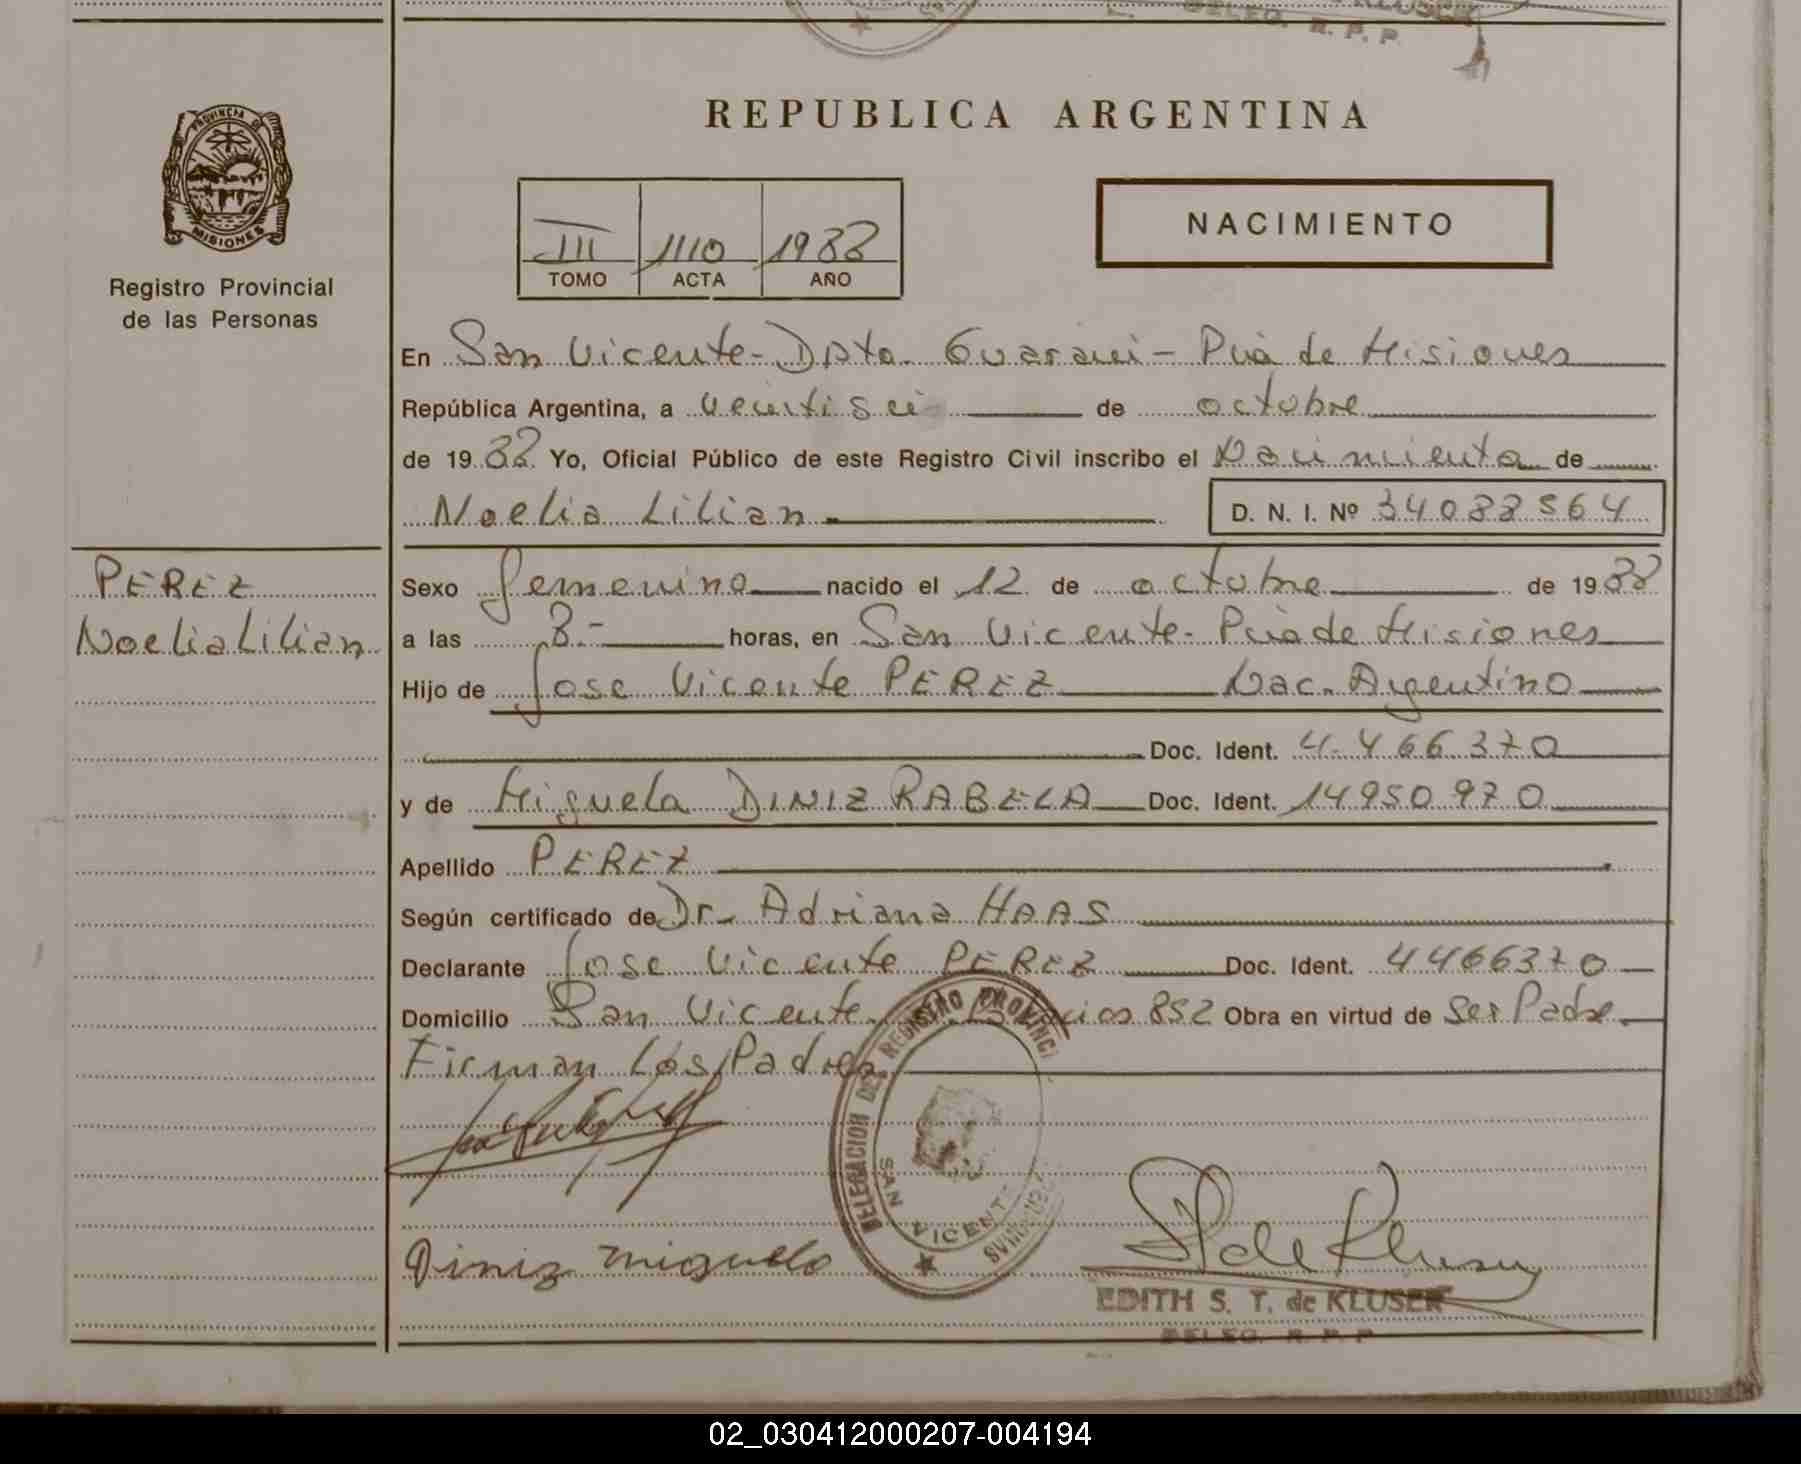 KLUSER
DELEG. R. P. P.
PROVINCIA DE
MISIONES
Registro Provincial
de las Personas
REPUBLICA ARGENTINA
III 1110 1988
TOMO ACTA AÑO
NACIMIENTO
En San Vicente - Dpto. Guarani - Pcia de Misiones
República Argentina, a veintiseis de octubre
de 1988 Yo, Oficial Público de este Registro Civil inscribo el Nacimiento de
Noelia Lilian D. N. I. Nº 34088564
PEREZ
Noelia Lilian
Sexo femenino nacido el 12 de octubre de 1988
a las 8.- horas, en San Vicente - Pcia de Misiones
Hijo de Jose Vicente PEREZ Nac. Argentino
Doc. Ident. 4.466.370
y de Miguela DINIZ RABELA Doc. Ident. 14950970
Apellido PEREZ
Según certificado de Dr. Adriana HAAS
Declarante Jose Vicente PEREZ Doc. Ident. 4466370
Domicilio San Vicente 852 Obra en virtud de Ser Padre.
Firman Los Padres
DELEGACION DEL REGISTRO PROVINCI
SAN VICENTE
Diniz Miguela
EDITH S. T. de KLUSER
DELEG. R. P. P
02_030412000207-004194